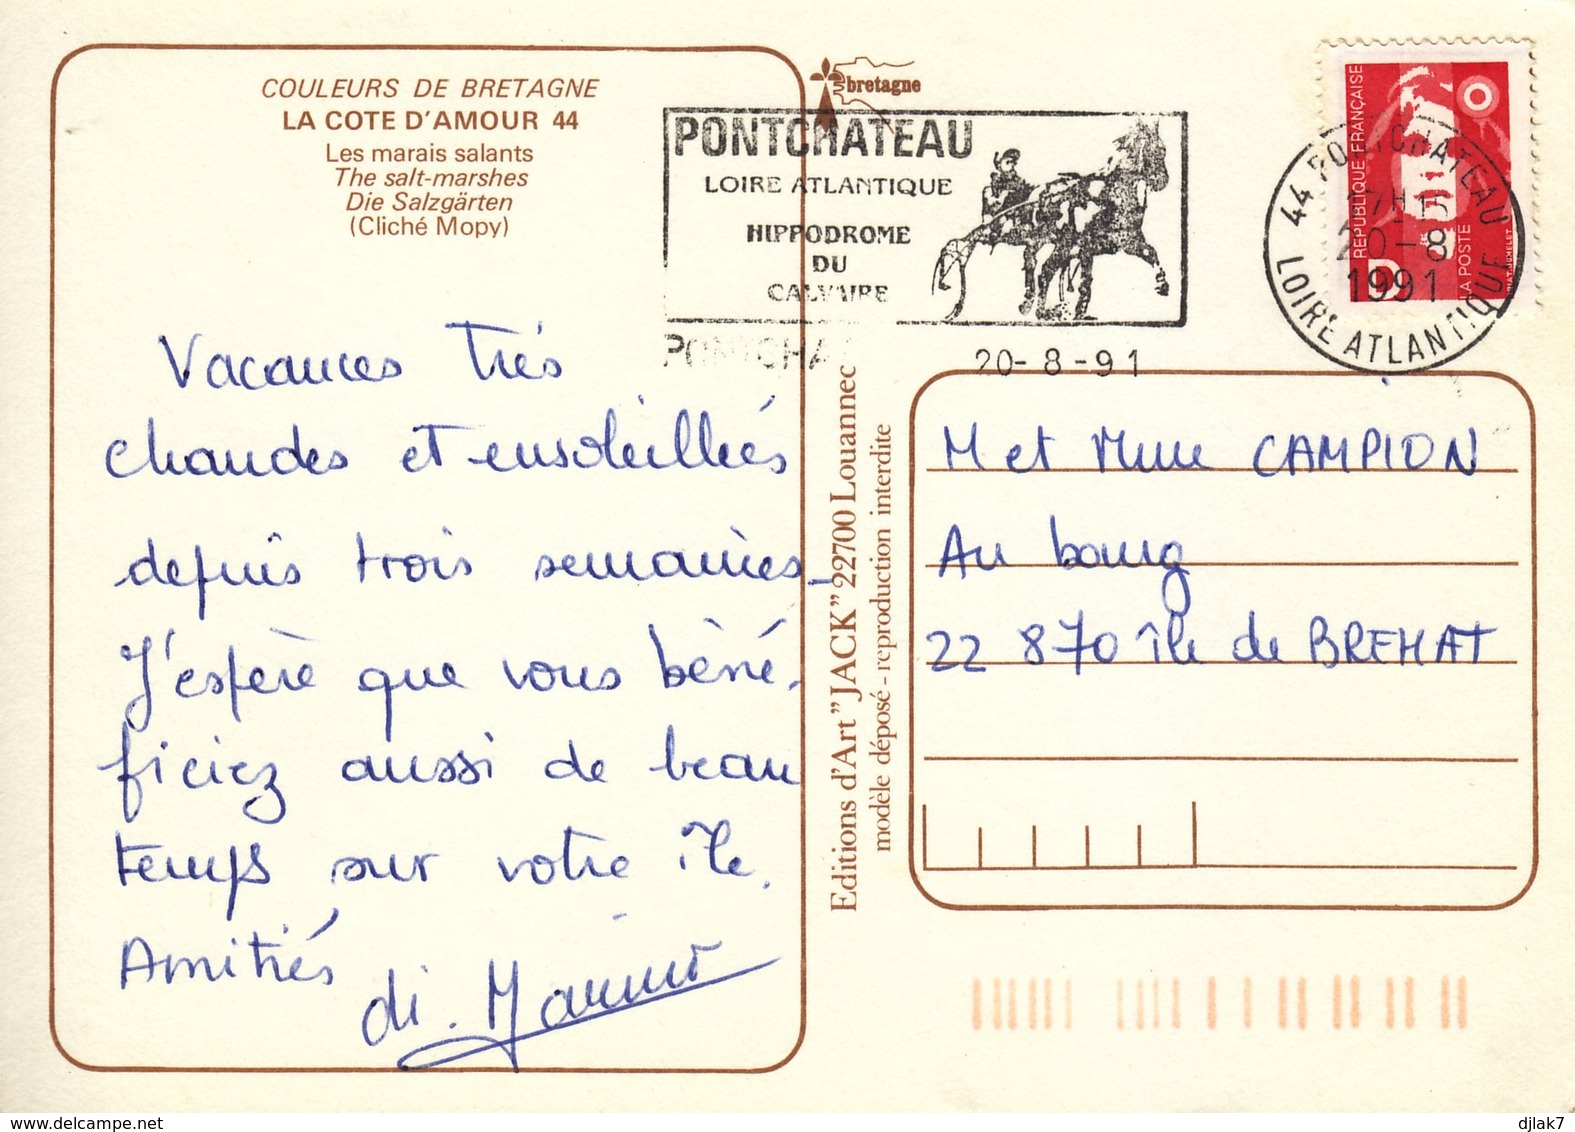 COULEURS DE BRETAGNE
LA COTE D'AMOUR 44
Les marais salants
The salt-marshes
Die Salzgärten
(Cliché Mopy)
Vacances très
chaudes et ensoleillées
depuis trois semaines_
J'espère que vous béné-
ficiez aussi de beau
temps sur votre île.
Amitiés
bretagne
PONTCHATEAU
LOIRE ATLANTIQUE
HIPPODROME
DU
CALVAIRE
20-8-91
Editions d'Art "JACK" 22700 Louannec
modèle déposé - reproduction interdite
REPUBLIQUE FRANÇAISE
LA POSTE
D
44 PONTCHATEAU
17H15
20-8
1991
LOIRE ATLANTIQUE
M et Mme CAMPION
Au bourg
22 870 île de BREHAT
djlak7